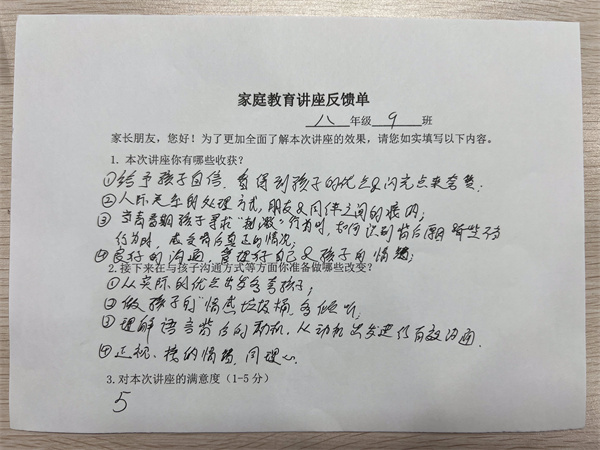 家庭教育讲座反馈单
八年级9班
家长朋友，您好！为了更加全面了解本次讲座的效果，请您如实填写以下内容。
1. 本次讲座你有哪些收获？
①给予孩子自信，看得到孩子的优点及闪光点来夸赞.
②人际关系的处理方式，朋友及同伴之间的接纳；
③当青春期孩子寻求"刺激"行为时，如何识别背后原
行为时，感受背后真正的情况；
④良好的沟通，管理好自己及孩子的情绪；
2. 接下来在与孩子沟通方式等方面你准备做哪些改变？
①从实际的优点出发夸夸孩子；
②做孩子的"情感垃圾桶，多倾听；
③理解语言背后的动机，从动机出发进行有效沟通.
④正视、接纳情绪，同理心.
3. 对本次讲座的满意度（1-5 分）
5